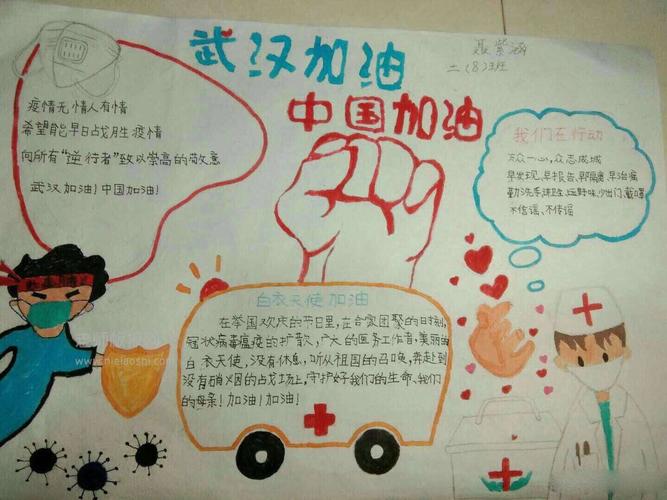 武汉加油
中国加油
二(8)班
疫情无情人有情
希望能早日战胜疫情
向所有“逆行者”致以崇高的敬意
武汉加油!中国加油!
我们在行动
万众一心,众志成城
早发现,早报告、早隔离、早治病
勤洗手,讲卫生、远野味、少出门、戴口罩
不信谣、不传谣
白衣天使加油
在举国欢庆的节日里,在合家团聚的日时刻,
冠状病毒瘟疫的扩散,广大的医务工作者,美丽的
白衣天使,没有休息,听从祖国的召唤,奔赴到
没有硝烟的战场上,守护好我们的生命、我们
的母亲!加油!加油!